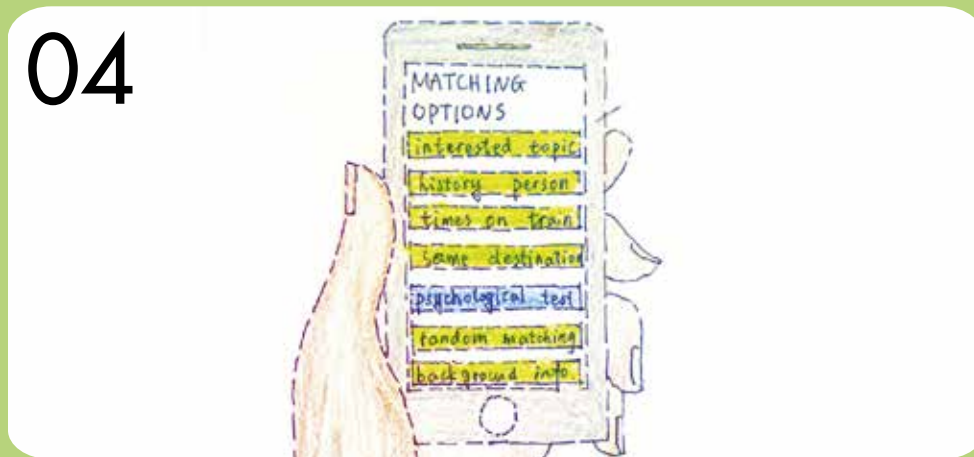 04
MATCHING
OPTIONS
interested topic
history person
times on train
same destination
psychological test
random matching
background info